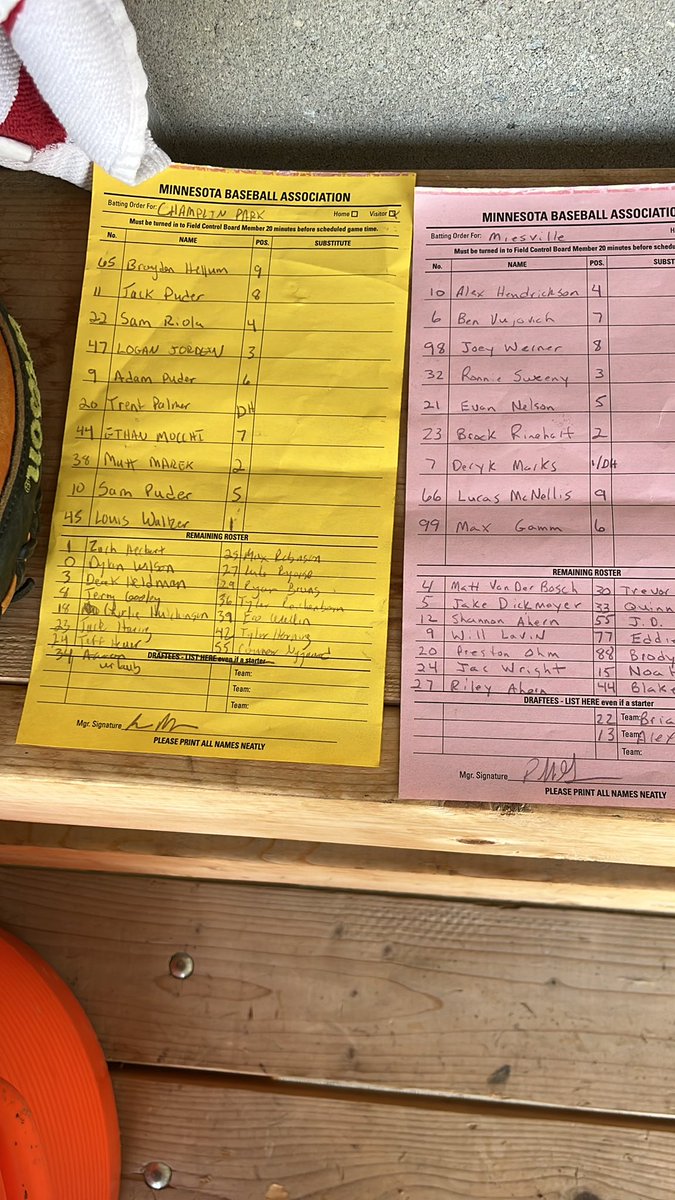 MINNESOTA BASEBALL ASSOCIATION
Batting Order For: CHAMPLIN PARK Home Visitor
Must be turned in to Field Control Board Member 20 minutes before scheduled game time.
No. NAME POS. SUBSTITUTE
65 Braydon Hellum 9
11 Jack Puder 8
22 Sam Riola 4
47 LOGAN JORDGIN 3
9 Adam Puder 6
20 Trent Palmer DH
44 ETHAN MOCCHI 7
38 Matt MAREK 2
10 Sam Puder 5
45 Louis Walker 1
REMAINING ROSTER
1 Zach 25 Max Robinson
0 Dylan Wilson 27
3 Derek Heldman 29 Ryan Bruns
8 Terry 36 Tyler
18 Hutchinson 39
23 Jack 42 Tyler
24 Jeff 55
34
DRAFTEES - LIST HERE even if a starter Team:
Team:
Team:
Mgr. Signature
PLEASE PRINT ALL NAMES NEATLY
MINNESOTA BASEBALL ASSOCIATIO
Batting Order For: Miesville H
Must be turned in to Field Control Board Member 20 minutes before schedu
No. NAME POS. SUBST
10 Alex Hendrickson 4
6 Ben Vujovich 7
98 Joey Werner 8
32 Ronnie Sweeny 3
21 Evan Nelson 5
23 Brock Rinehart 2
7 Deryk Marks 1/DH
66 Lucas McNellis 9
99 Max Gamm 6
REMAINING ROSTER
4 Matt Van Der Bosch 30 Trevor
5 Jake Dickmeyer 33 Quinn
12 Shannon Ahern 55 J.D.
9 Will Lavin 77 Eddi
20 Preston Ohm 88 Brody
24 Jac Wright 15 Noa
27 Riley Ahern 44 Blake
DRAFTEES - LIST HERE even if a starter
22 Team: Bria
13 Team: Alex
Team:
Mgr. Signature
PLEASE PRINT ALL NAMES NEATLY